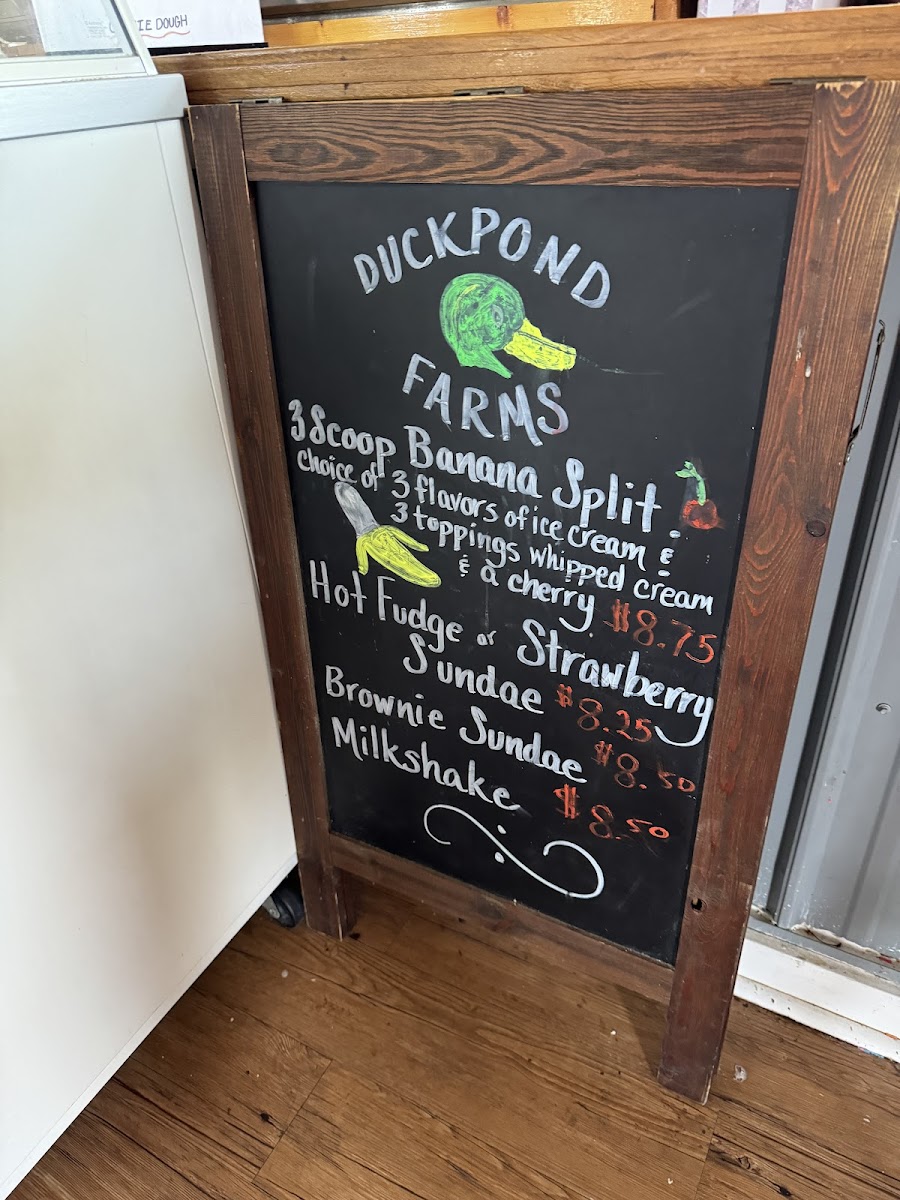 IE DOUGH
DUCKPOND
FARMS
3 Scoop Banana Split
choice of 3 flavors of ice cream &
3 toppings whipped cream
& a cherry $8.75
Hot Fudge or Strawberry
Sundae $8.25
Brownie Sundae $8.50
Milkshake $8.50